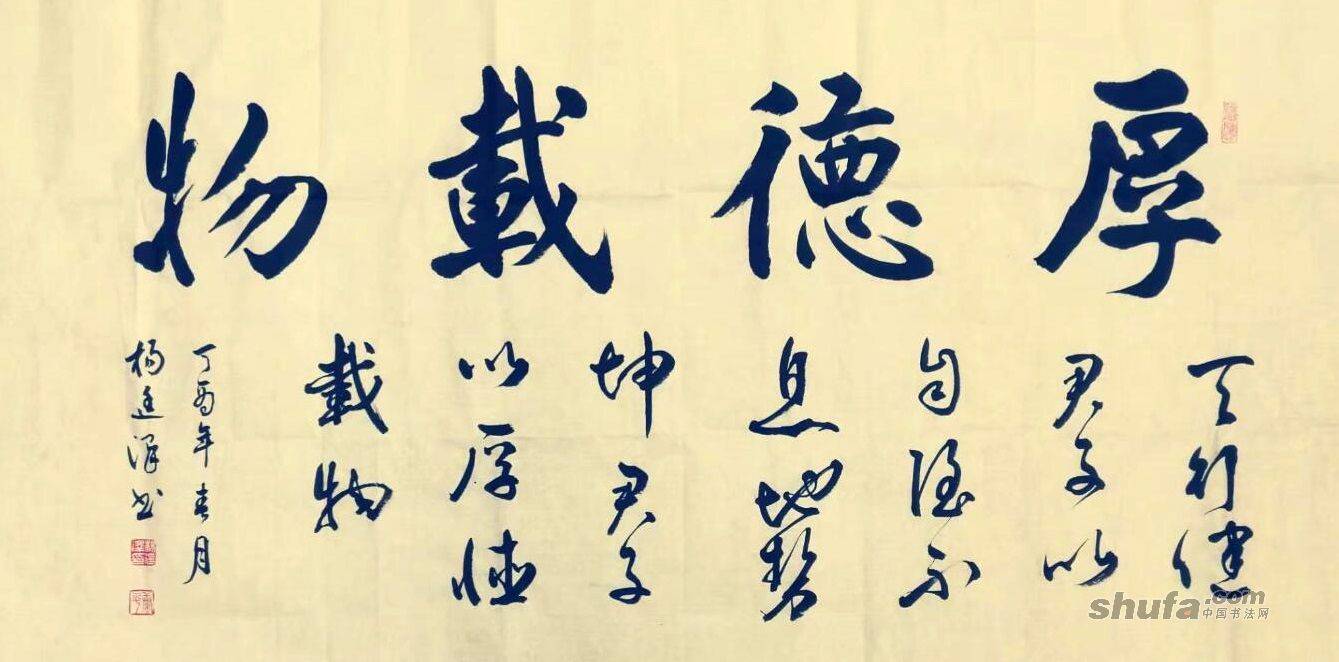 厚德載物
天行健
君子以
自强不
息地势
坤君子
以厚德
載物
丁酉年春月
杨廷泽书
shufa.com
中国书法网